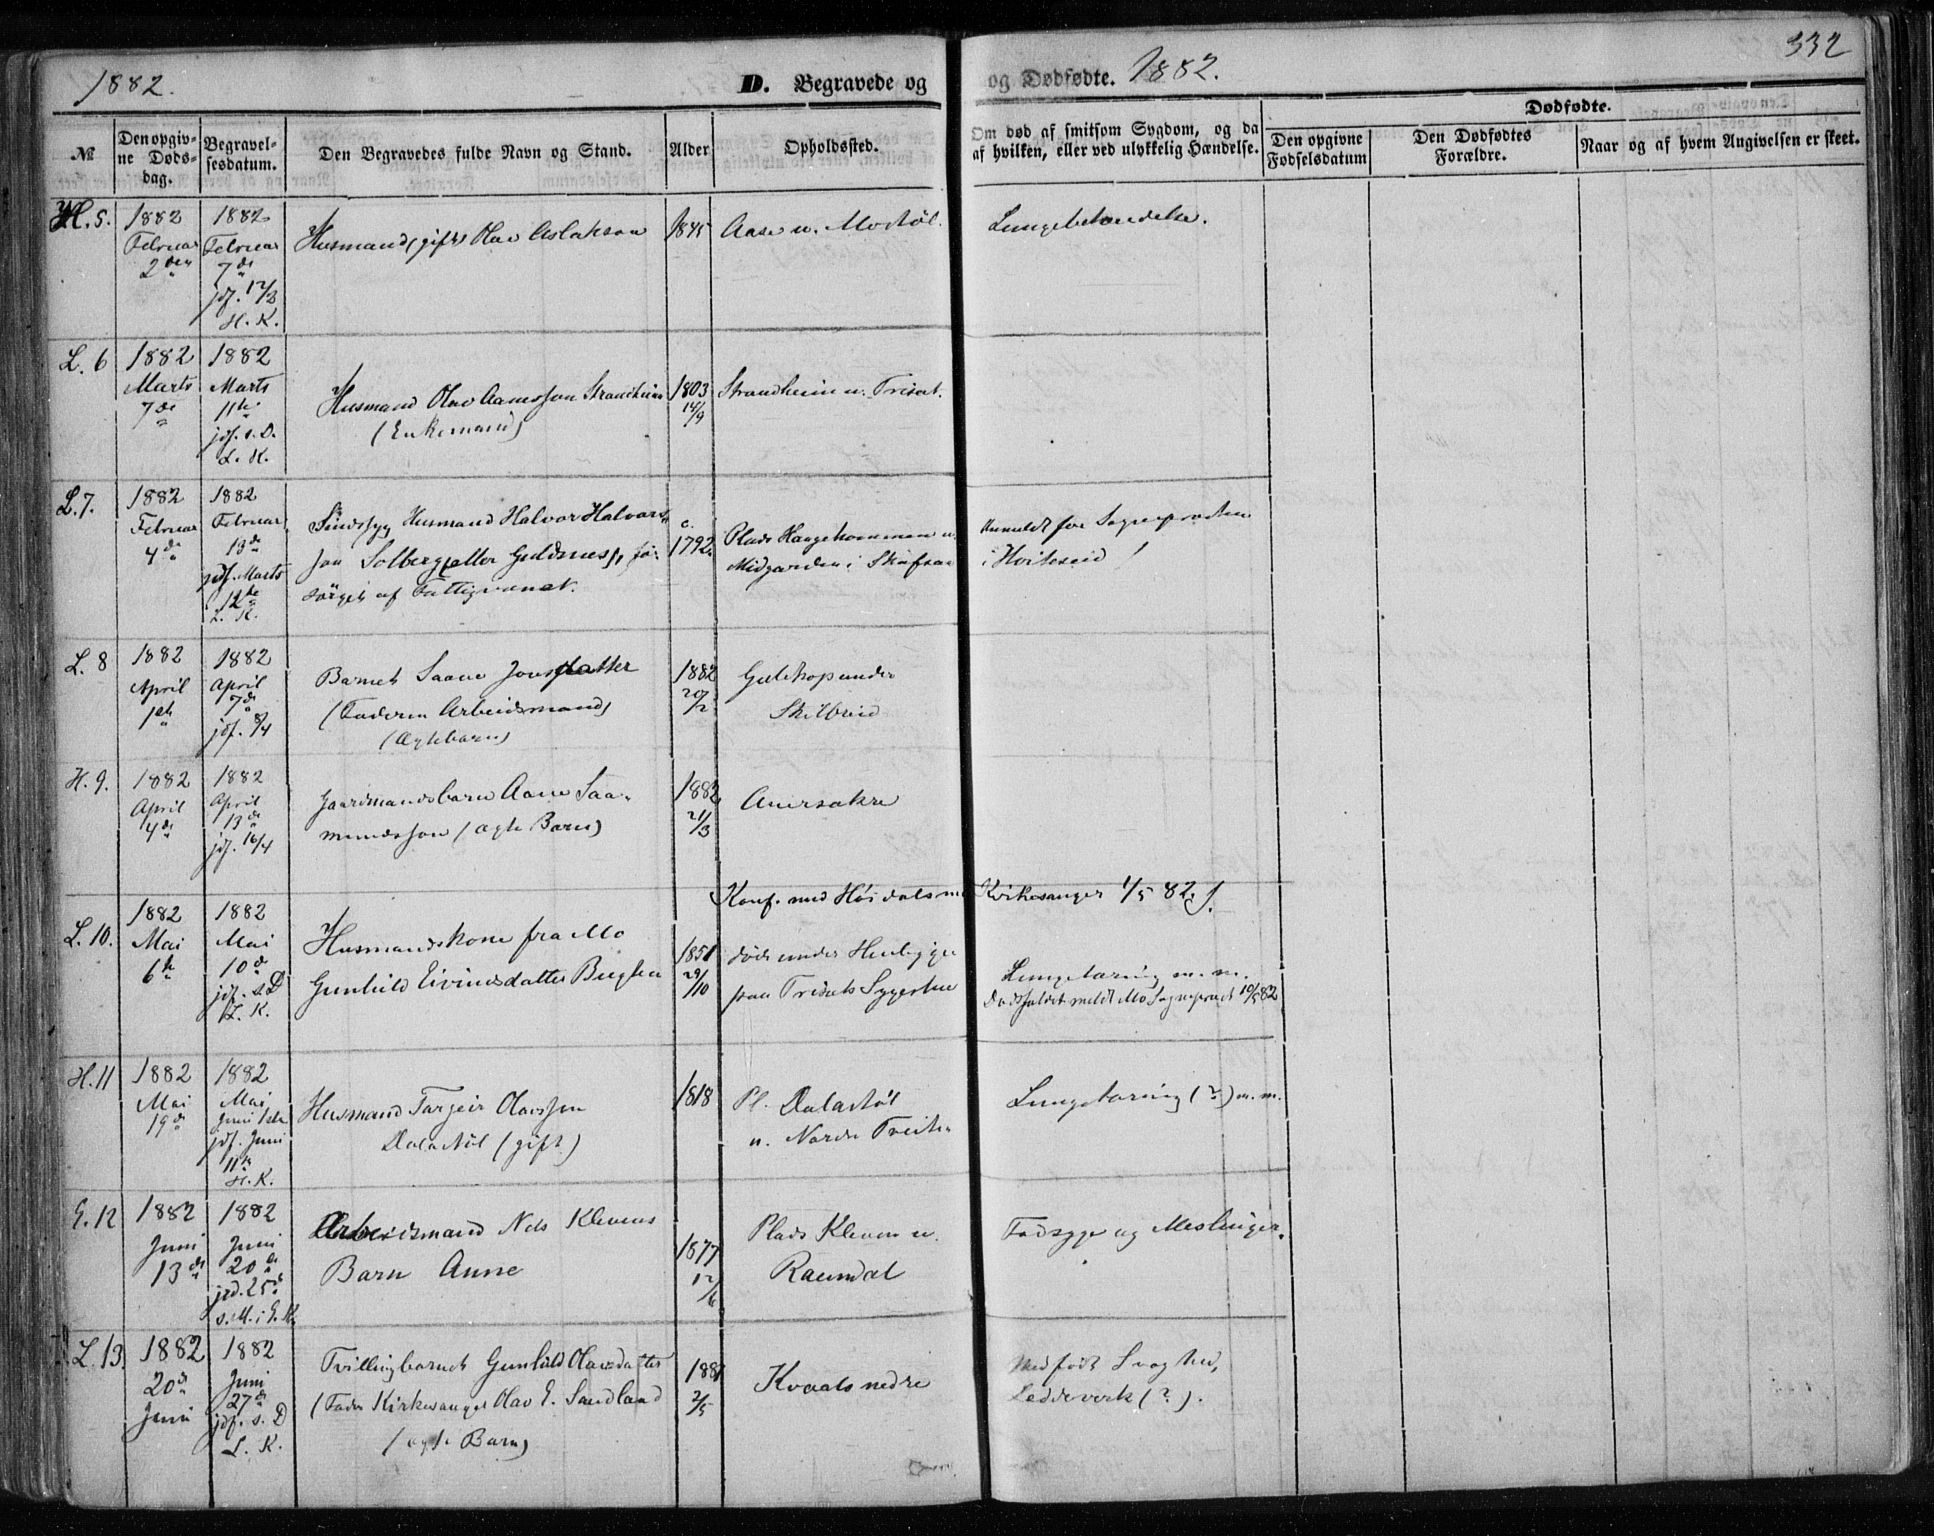 1882.
D. Begravede og
og Dødfødte. 1882.
332
№
Den opgivne Dødsdag.
Begravelsesdatum.
Den Begravedes fulde Navn og Stand.
Alder
Opholdssted.
Om død af smitsom Sygdom, og da
af hvilken, eller ved ulykkelig Hændelse.
Dødfødte.
Den opgivne
Fødselsdatum
Den Dødfødtes
Forældre.
Naar og af hvem Angivelsen er skeet.
H. 5.
1882
Februar
2den
1882
Februar
7de
jdf. 12/3
H. K.
Husmand (gift) Olav Aslaksson
1845
Aase u. Mostøl.
Lungebetændelse.
L. 6
1882
Marts
7de
1882
Marts
11te
jdf. s. D.
L. K.
Husmand Olav Aamsson Strandheim
(Enkemand)
1803
14/9
Strandheim u. Trisæt.
L. 7.
1882
Februar
4de
1882
Februar
13de
jdf. Marts
12te
L. K.
Sindssyg Husmand Halvor Halvors-
son Solberg (eller Guldnes), for-
sørget af Fattigvæsnet.
c.
1792.
Plads Haugekommen u.
Midgarden i Skafsaa
Anmeldt for Sognepresten
i Hviteseid!
L. 8
1882
April
1ste
1882
April
7de
jdf. 8/4
Barnet Saave Jonsdatter
(Faderen Arbeidsmand)
(Ægtebarn)
1882
20/2
Gulekop under
Skilbreid
H. 9.
1882
April
4de
1882
April
13de
jdf. 16/4
Gaardmandsbarn Aane Saa-
mundsson (ægte Barn)
1882
21/3
Aversakre
Konf. med Høidalsmo Kirkesanger 1/5 82.
L. 10.
1882
Mai
6te
1882
Mai
10de
jdf. s. D
L. K.
Husmandskone fra Mo
Gunhild Eivindsdatter
1851
29/10
døde under Henligge
paa Trisæt Sygestue
Lungetæring m. m.
Dødsfaldet meldt Mo Sognepræst 10/5 82
H. 11
1882
Mai
19de
1882
Mai
Juni 1ste
jdf. Juni
11te
H. K.
Husmand Targeir Olavsson
Dalastøl (gift)
1818
Pl. Dalastøl
u. Nordre Tveit.
Lungetæring (?) m. m.
E. 12
1882
Juni
13de
1882
Juni
20de
jrd. 25de
s. M. i E. K.
Arbeidsmand Nels Klevens
Barn Anne
1877
12/6
Plads Kleven u.
Ravndal
Fadsyge og Meslinger.
L. 13.
1882
20de
Juni
1882
Juni
27de
jdf. s. D
L. K.
Tvillingbarnet Gunhild Olavsdatter
(Fader Kirkesanger Olav E. Sandland
(ægte Barn)
1881
2/5
Kvaale nedre
Medfødt Svaghed,
Leddeverk (?).